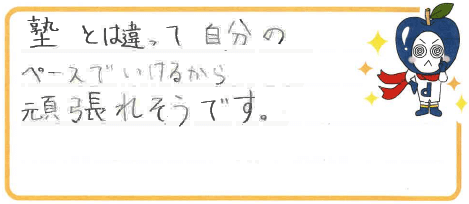 塾とは違って自分の
ペースでいけるから
頑張れそうです。
d